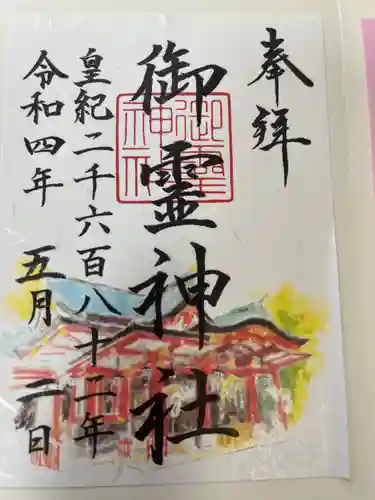 奉拝
御霊神社
皇紀二千六百八十二年
令和四年 五月 二日